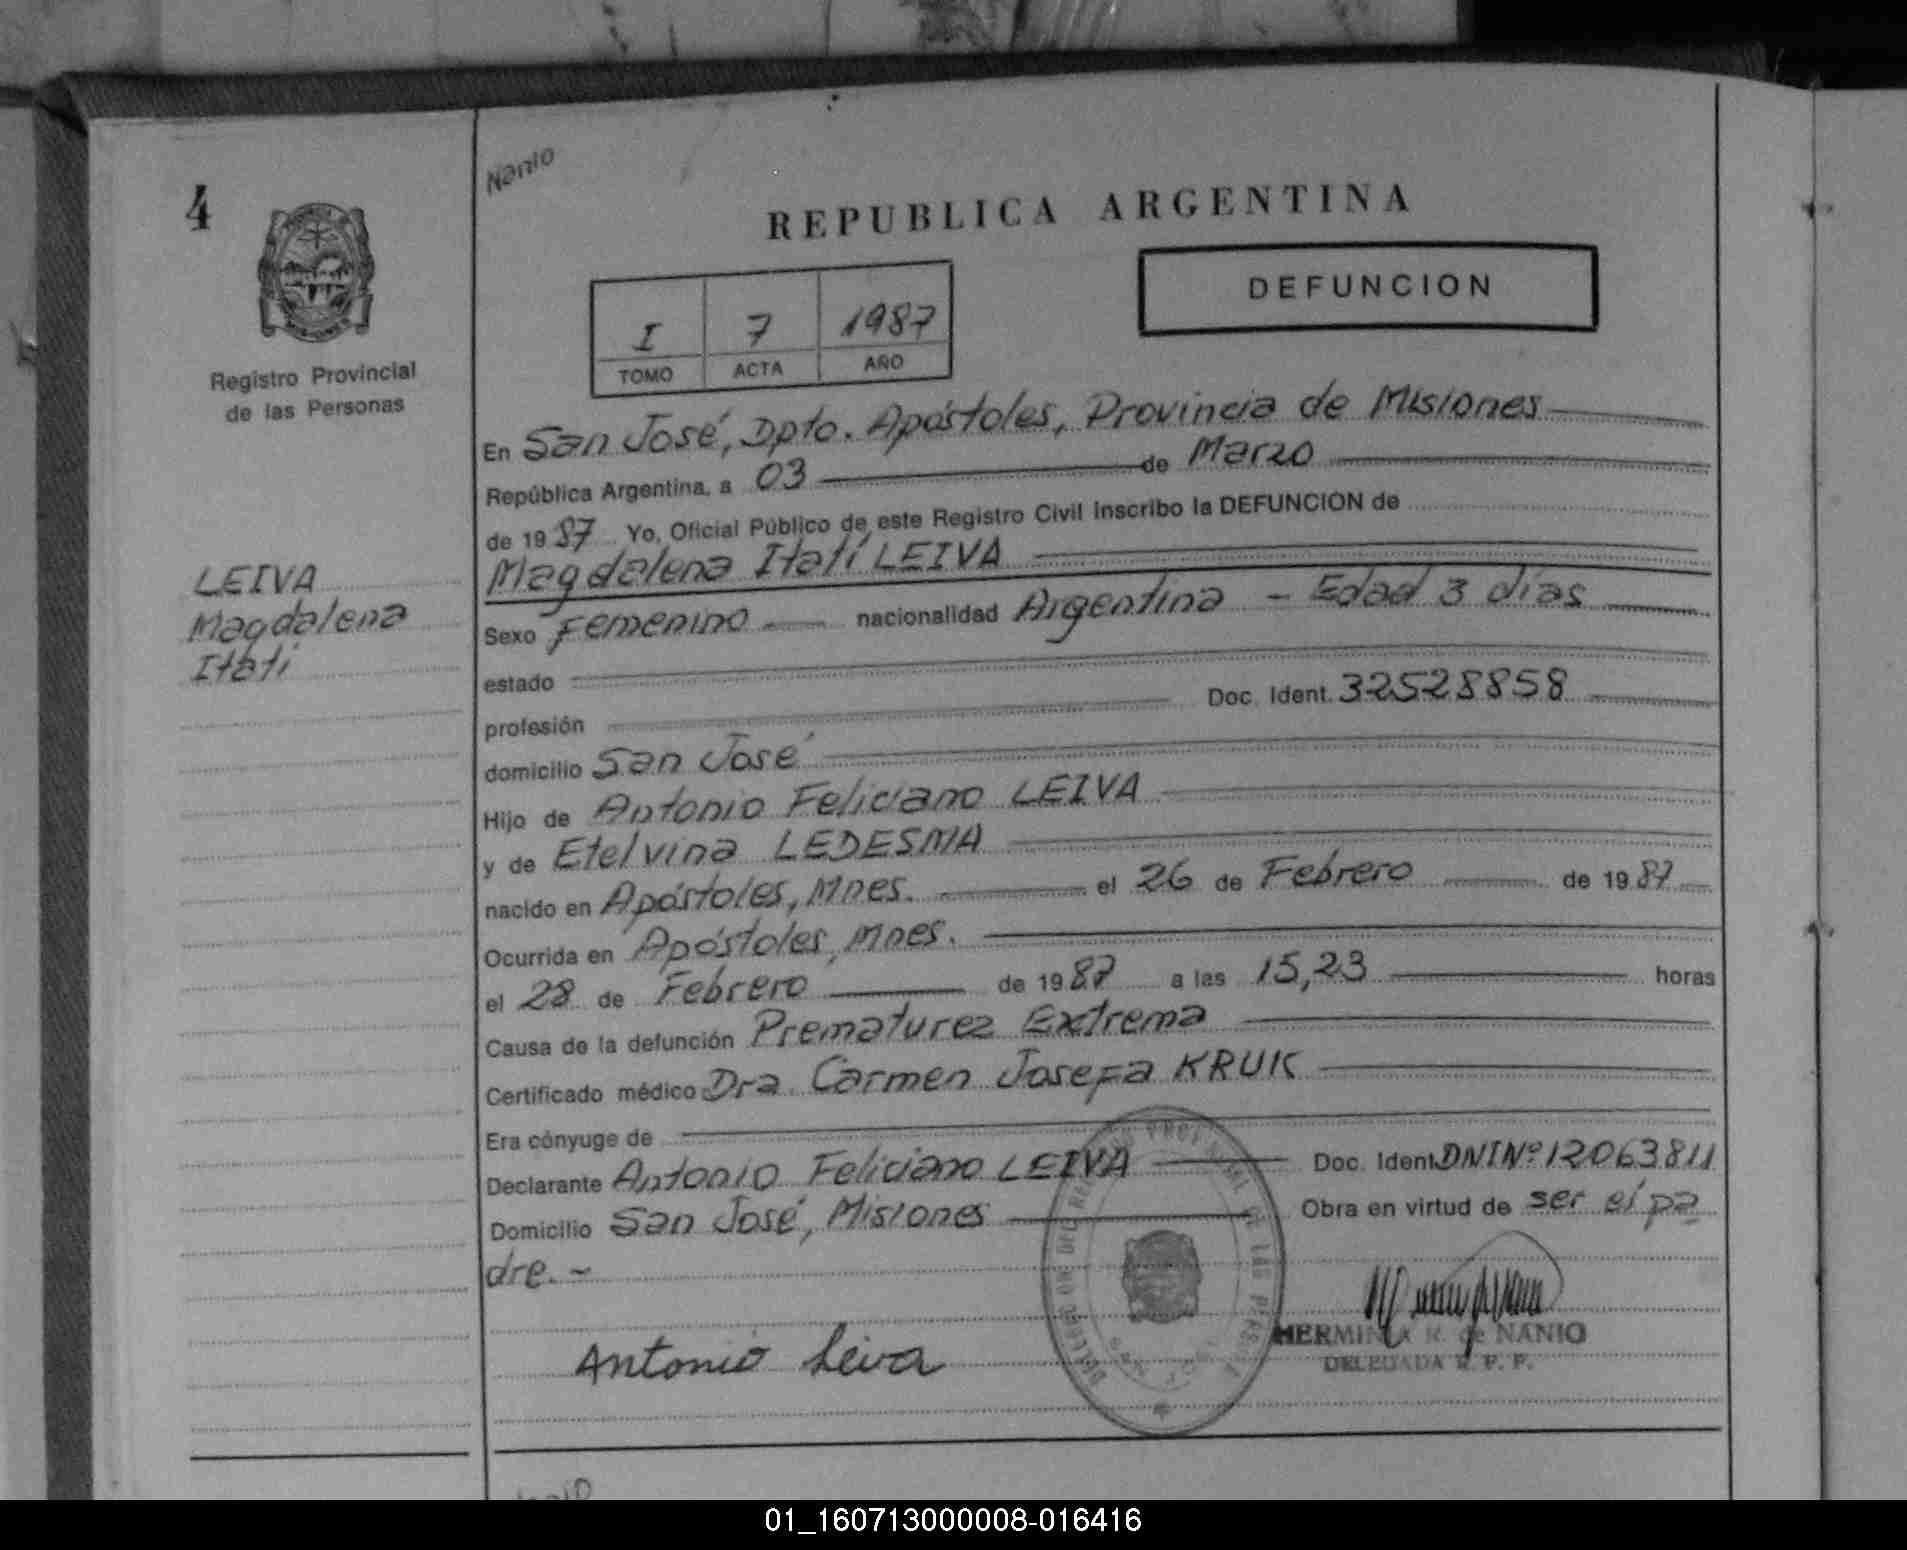 Nanio
4
REPUBLICA ARGENTINA
DEFUNCION
I 7 1987
TOMO ACTA AÑO
Registro Provincial
de las Personas
En San José, Dpto. Apóstoles, Provincia de Misiones
República Argentina, a 03 de Marzo
de 1987 Yo, Oficial Público de este Registro Civil Inscribo la DEFUNCION de
Magdalena Itatí LEIVA
LEIVA
Magdalena
Itati
Sexo Femenino nacionalidad Argentina - Edad 3 días
estado
profesión Doc. Ident. 32528858
domicilio San José
Hijo de Antonio Feliciano LEIVA
y de Etelvina LEDESMA
nacido en Apóstoles, Mnes. el 26 de Febrero de 1987
Ocurrida en Apóstoles, Mnes.
el 28 de Febrero de 1987 a las 15,23 horas
Causa de la defunción Prematurez Extrema
Certificado médico Dra. Carmen Josefa KRUK
Era cónyuge de
Declarante Antonio Feliciano LEIVA Doc. Ident DNI Nº 12063811
Domicilio San José, Misiones Obra en virtud de ser el pa
dre. -
Antonio Leiva
HERMINIA R. de NANIO
DELEGADA R. P. P.
01_160713000008-016416